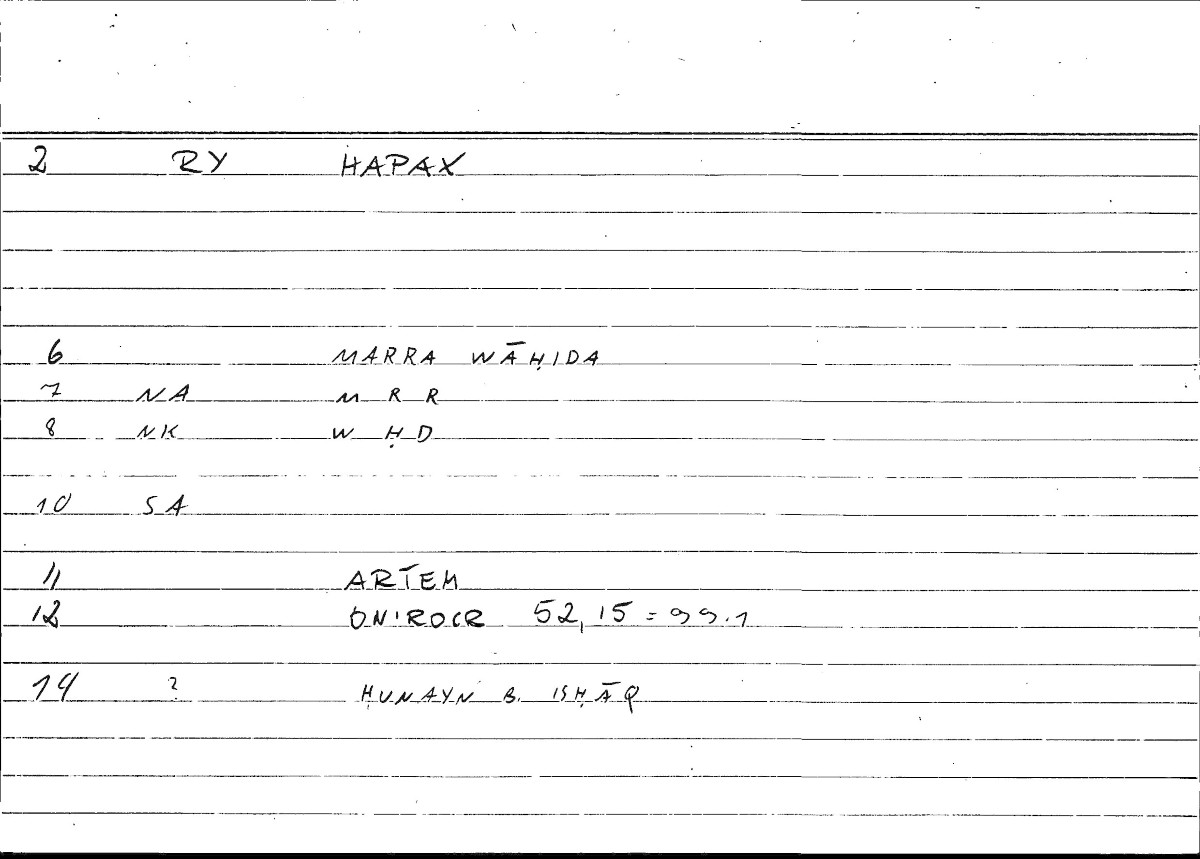 2 RY HAPAX
6 MARRA WĀḤIDA
7 NA M R R
8 NK W Ḥ D
10 SA
11 ARTEM
12 ONIROCR 52,15 = 99.1
14 ? ḤUNAYN B. ISḤĀQ